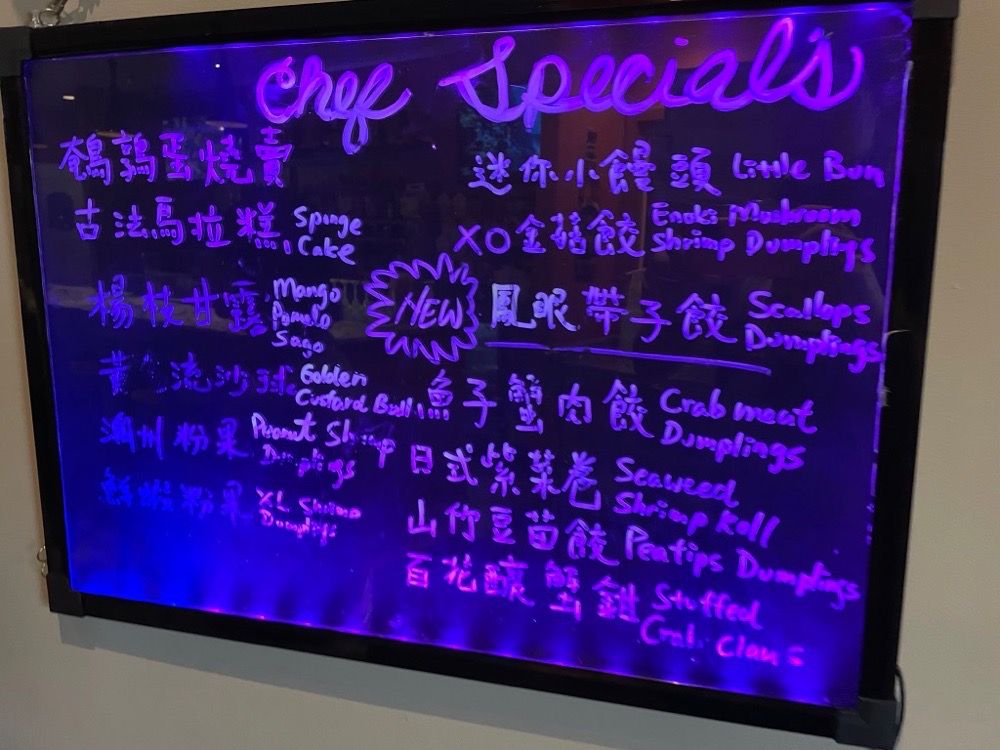 Chef Specials
鵪鶉蛋燒賣
古法馬拉糕 Sponge
Cake
楊枝甘露 Mango
Pomelo
Sago
黃 流沙球 Golden
Custard Ball
潮州粉果 Peanut Shrimp
Dumplings
鮮蝦粉果 XL Shrimp
Dumplings
迷你小饅頭 Little Bun
XO金菇餃 Enoki Mushroom
Shrimp Dumplings
NEW 鳳眼帶子餃 Scallops
Dumplings
魚子蟹肉餃 Crab meat
Dumplings
日式紫菜卷 Seaweed
Shrimp Roll
山竹豆苗餃 Peatips Dumplings
百花釀蟹鉗 Stuffed
Crab Claws